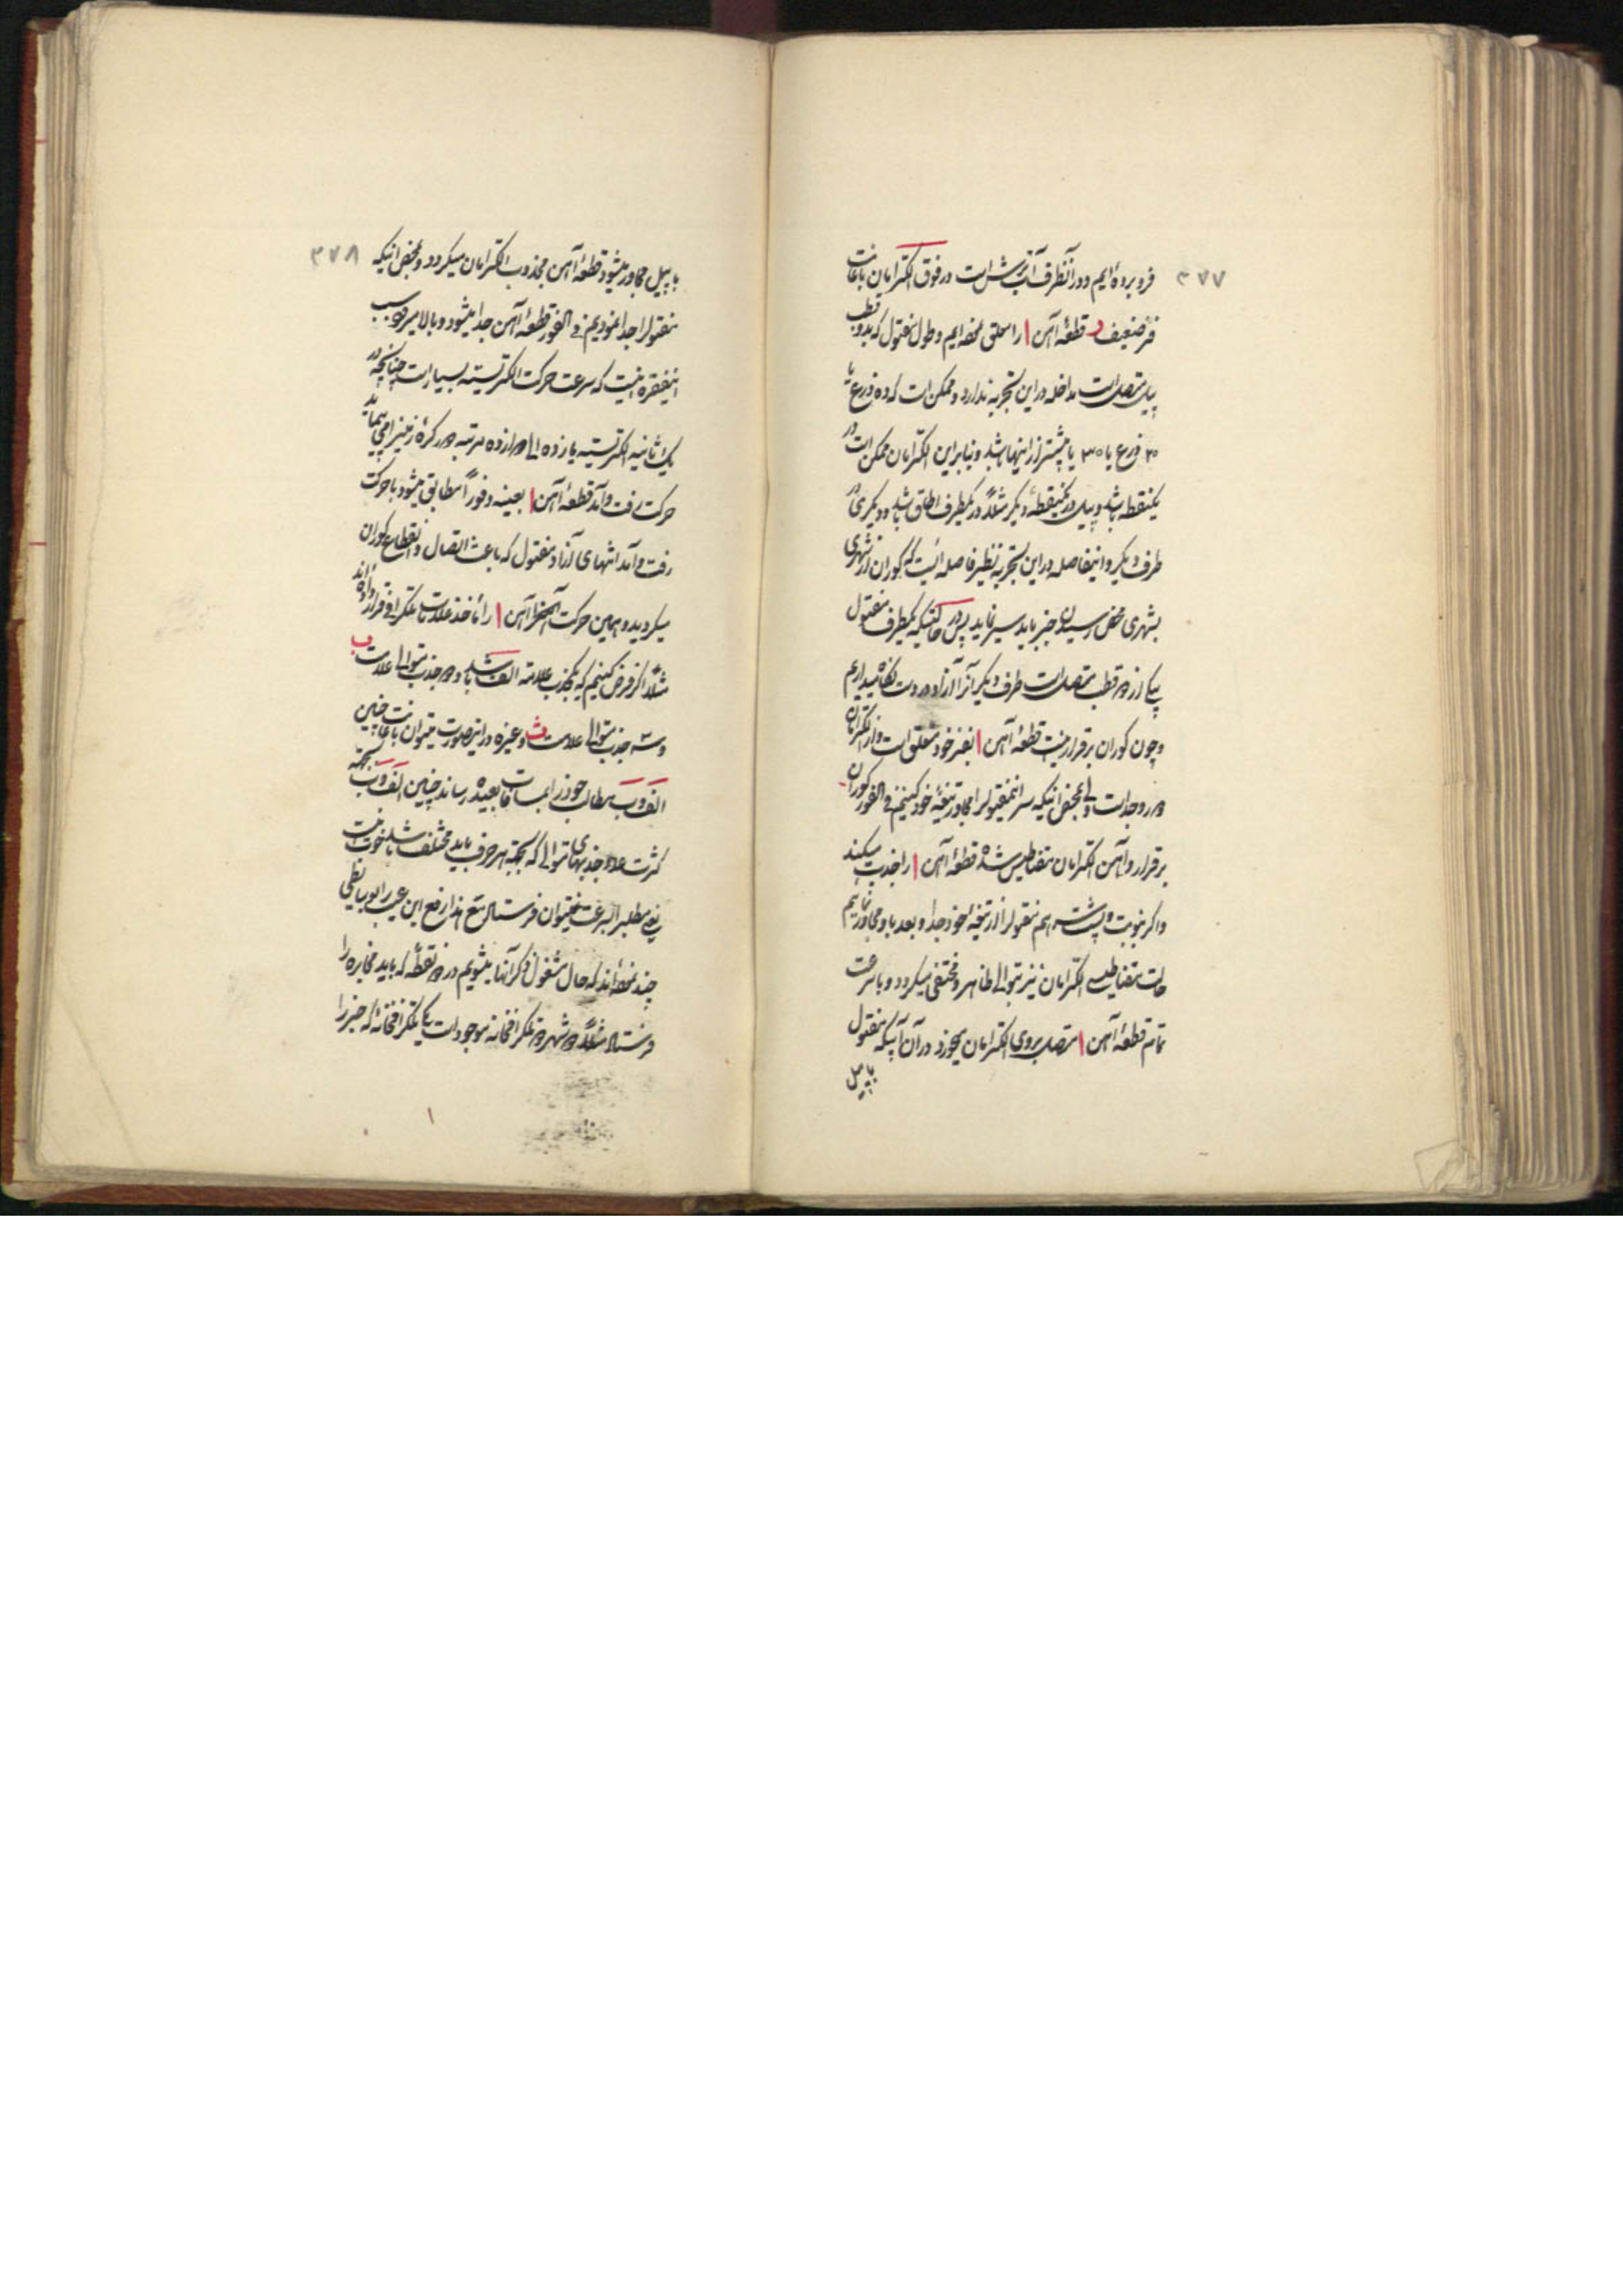 ۳۷۷
فرو برده‌ایم و در آنطرف آنتریش است در فوق الکترامان باعانت
فنر ضعیف د قطعهٔ آهن ا را معلق نموده‌ایم و طول مفتول که بدو قطب
پیل متصل است مداخله در این تجربه ندارد و ممکن است که ده ذرع یا
۲۰ ذرع یا ۳۰ یا بیشتر از اینها باشد و بنابراین الکترامان ممکن است در
یکنقطه باشد و پیل در یکنقطهٔ دیگر مثلاً در یکطرف اطاق باشد و دیگری در
طرف دیگر و اینفاصله در این تجربه نظیر فاصله ایست که کوران از شهری
بشهری محض رسیدن خبر باید سیر نماید پس در حالتیکه یکطرف مفتول
بیکی از دو قطب متصل است طرف دیگر آنرا آزاد در دست نگاه میداریم
و چون کوران برقرار نیست قطعهٔ آهن ا بفنر خود معلق است و از الکترامان
دور و جدا است ولی بمحض اینکه سر اینمفتول را مجاور تیغهٔ خود کنیم فی الفور کوران
برقرار و آهن الکترامان مقناطیس شده قطعهٔ آهن ا را جذب میکند
و اگر بنوبت و پشت سر هم مفتول را از تیغهٔ خود جدا و بعد با او مجاور نمائیم
حالت مقناطیسی الکترامان نیز بتوالی ظاهر و مختفی میگردد و با سرعت
تمام قطعهٔ آهن ا متصل بروی الکترامان میخورد در آن آنیکه مفتول
با پیل
۳۷۸
با پیل مجاور میشود قطعهٔ آهن مجذوب الکترامان میگردد و بمحض اینکه
مفتول را جدا نمودیم فی الفور قطعهٔ آهن جدا میشود و بالا میرود و سبب
اینفقره اینست که سرعت حرکت الکتریسیته بسیار است چنانچه در
یک ثانیه الکتریسیته یازده الی دوازده مرتبه دور کرهٔ زمین را می پیماید
حرکت رفت و آمد قطعهٔ آهن ا بعینه و فوراً مطابق میشود با حرکت
رفت و آمد انتهای آزاد مفتول که باعث اتصال و انقطاع کوران
میگردید و همین حرکت آهن ا را مأخذ علامات تلگرافی قرار داده‌اند
مثلاً اگر فرض کنیم که یک جذب علامت الف باشد و دو جذب متوالی علامت ب
و سه جذب متوالی علامت ث و غیره در اینصورت میتوان باعانت چنین
الف و ب مطالب خود را بمسافات بعیده رساند چنین الف و ب بجهة
کثرت عدد جذبهای متوالی که بجهة هر حرف باید مختلف باشد خوب نیست
یعنی مطلب را بسرعت نمیتوان فرستاد مع هذا رفع این عیب را بوسایطی
چند نموده‌اند که حال مشغول ذکر آنها میشویم در دو نقطهٔ که باید مخابره را
فرستاد مثلاً دو شهر دو تلگرافخانه موجود است یکی تلگرافخانهٔ که خبر را